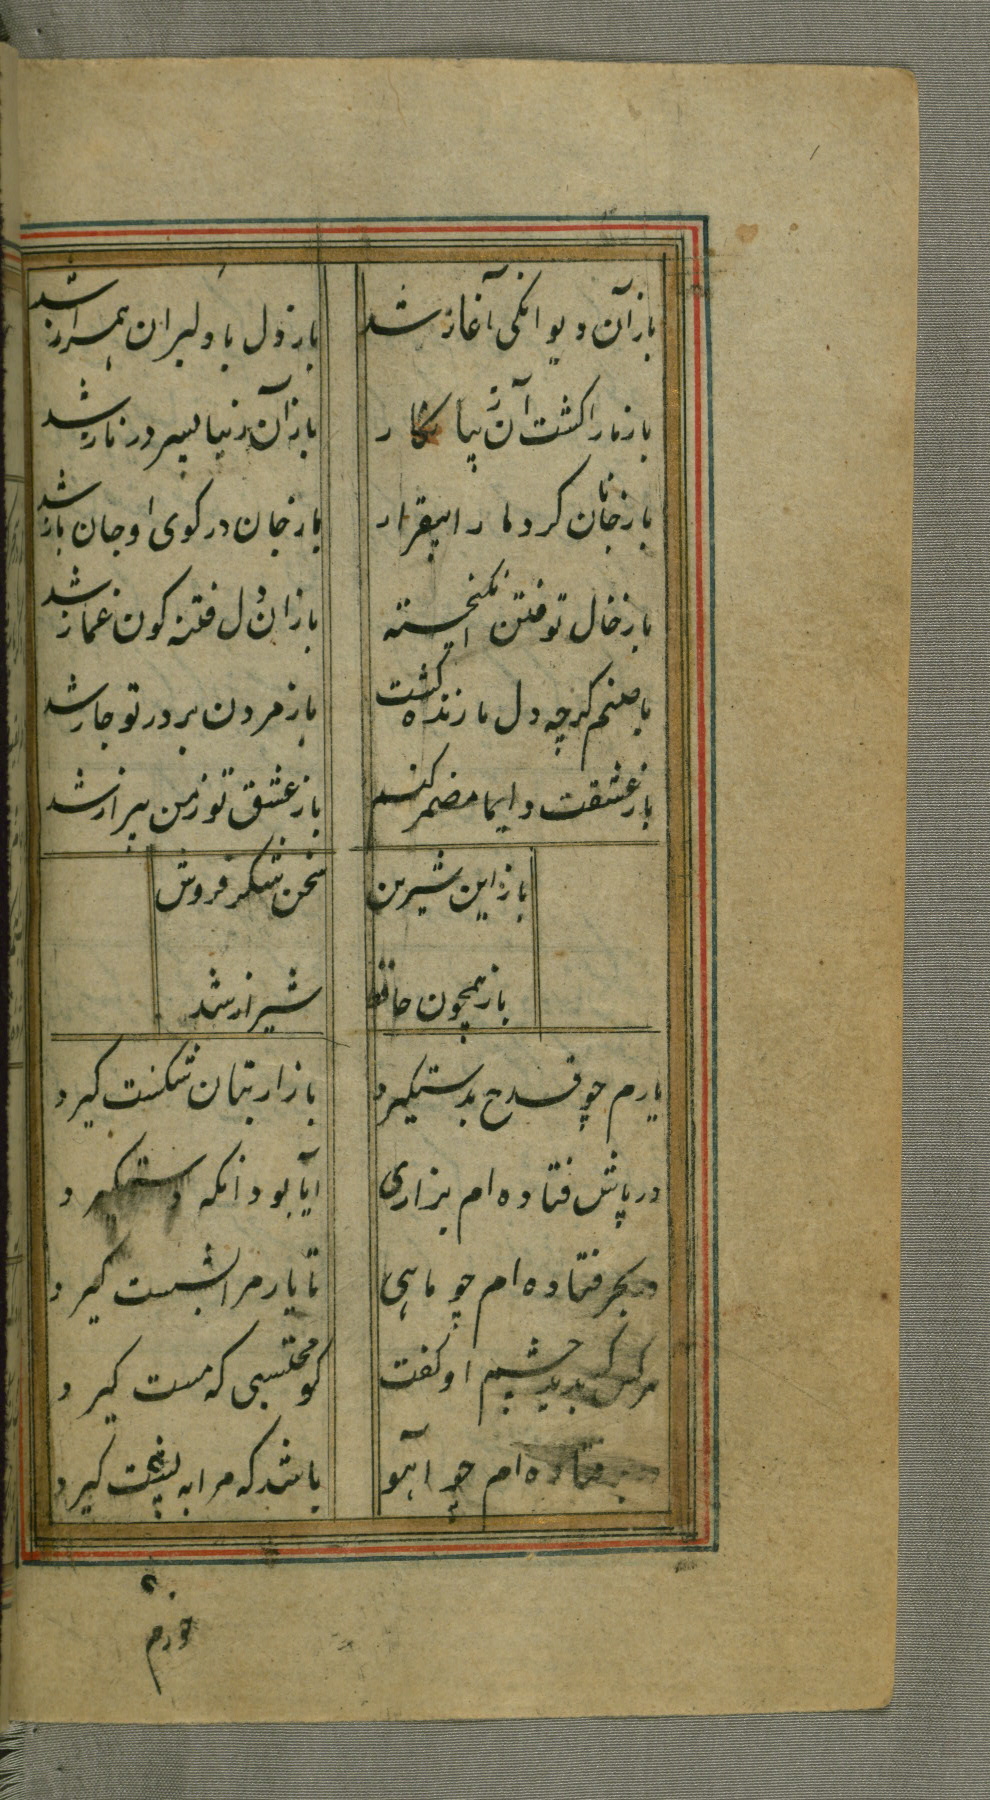 باز آن دیوانکی آغاز شد
باز دل با دلبران همراز شد
باز ما را کشت آن زیبا نکار
باز آن زیبا پسر در ناز شد
باز جانان کرد ما را بیقرار
باز جان در کوی او جان باز شد
باز خال تو فتن انکیخته
باز ان دل فتنه کون غماز شد
با صنم کرچه دل ما زنده کشت
باز مردن بر در تو جار شد
باز عشقت دایما مضمر کنم
باز عشق تو ز من بیزار شد
باز این شیرین
سخن شکر فروش
باز همچون حافظ
شیراز شد
یارم چو قدح بدست کیرد
بازار بتان شکست کیرد
در پاش فتاده ام بزاری
ایا بود انکه دست کیرد
در بحر فتاده ام چو ماهی
تا یار مرا بشست کیرد
هر کس که بدید چشم او کفت
کو محتسبی که مست کیرد
فتاده ام چو اهو
باشد که مرا به کیرد
خورم